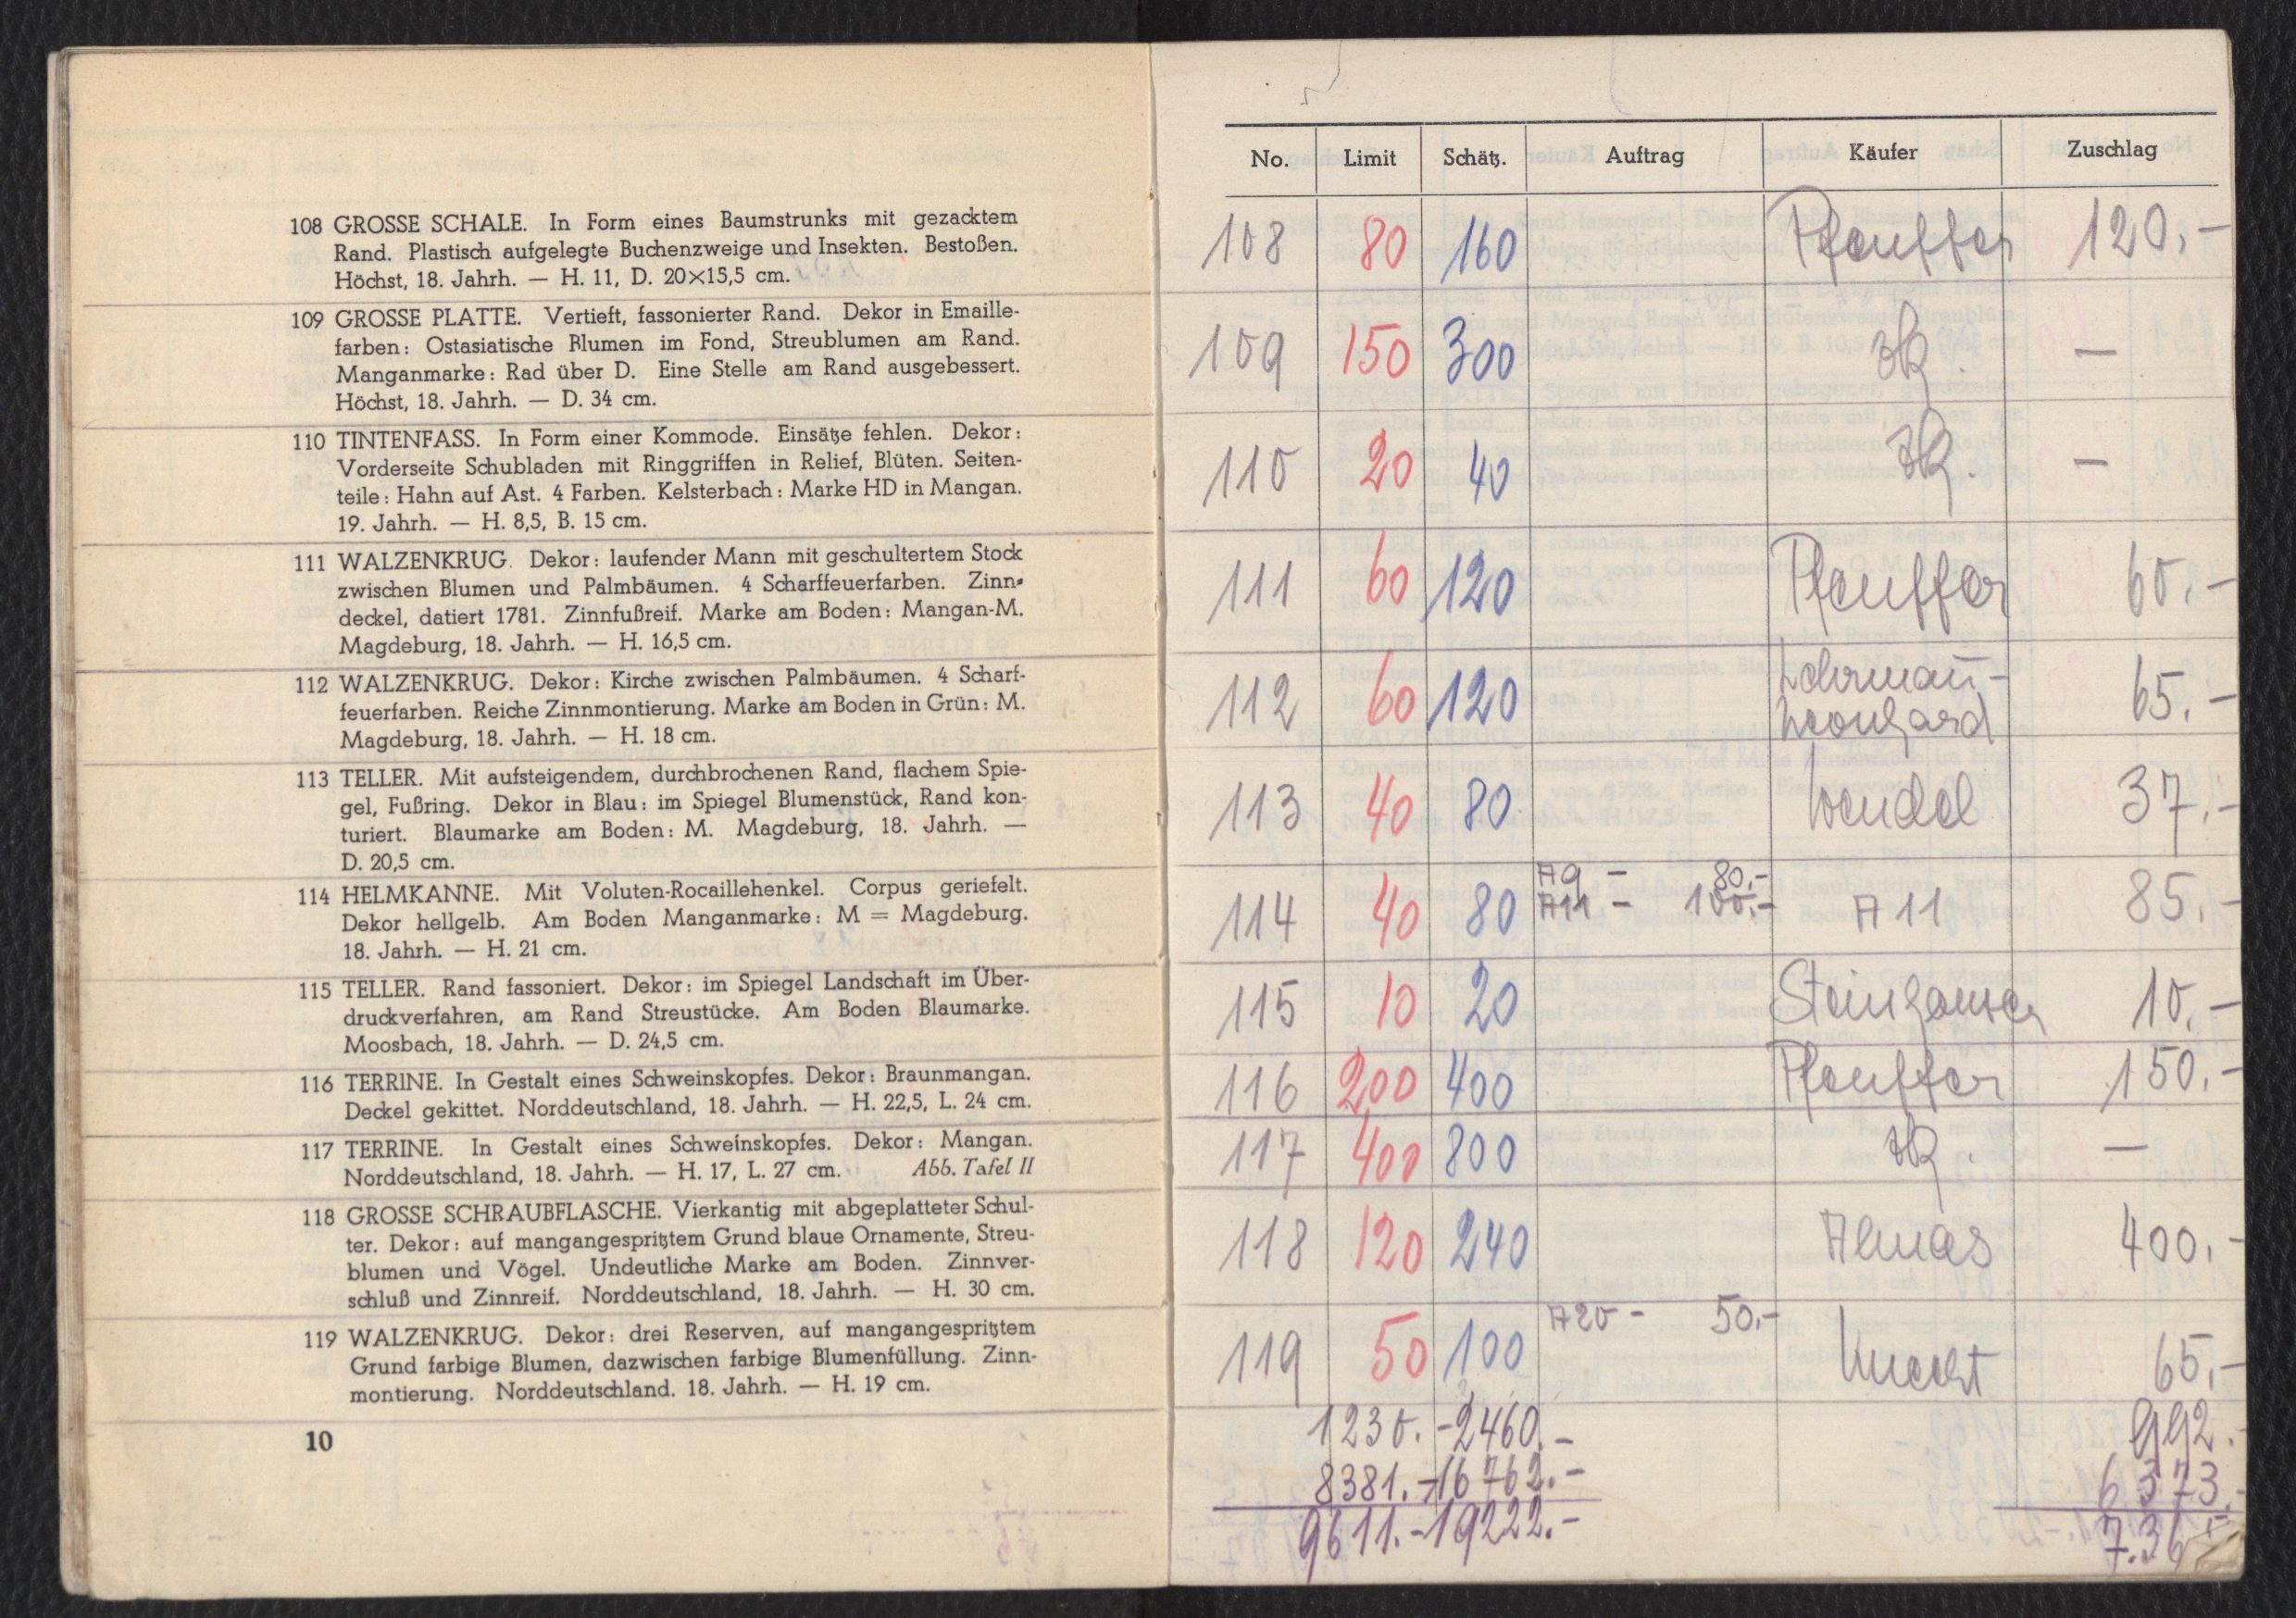 108 GROSSE SCHALE. In Form eines Baumstrunks mit gezacktem
Rand. Plastisch aufgelegte Buchenzweige und Insekten. Bestoßen.
Höchst, 18. Jahrh. — H. 11, D. 20×15,5 cm.
109 GROSSE PLATTE. Vertieft, fassonierter Rand. Dekor in Emaille-
farben: Ostasiatische Blumen im Fond, Streublumen am Rand.
Manganmarke: Rad über D. Eine Stelle am Rand ausgebessert.
Höchst, 18. Jahrh. — D. 34 cm.
110 TINTENFASS. In Form einer Kommode. Einsätze fehlen. Dekor:
Vorderseite Schubladen mit Ringgriffen in Relief, Blüten. Seiten-
teile: Hahn auf Ast. 4 Farben. Kelsterbach: Marke HD in Mangan.
19. Jahrh. — H. 8,5, B. 15 cm.
111 WALZENKRUG. Dekor: laufender Mann mit geschultertem Stock
zwischen Blumen und Palmbäumen. 4 Scharffeuerfarben. Zinn-
deckel, datiert 1781. Zinnfußreif. Marke am Boden: Mangan-M.
Magdeburg, 18. Jahrh. — H. 16,5 cm.
112 WALZENKRUG. Dekor: Kirche zwischen Palmbäumen. 4 Scharf-
feuerfarben. Reiche Zinnmontierung. Marke am Boden in Grün: M.
Magdeburg, 18. Jahrh. — H. 18 cm.
113 TELLER. Mit aufsteigendem, durchbrochenen Rand, flachem Spie-
gel, Fußring. Dekor in Blau: im Spiegel Blumenstück, Rand kon-
turiert. Blaumarke am Boden: M. Magdeburg, 18. Jahrh. —
D. 20,5 cm.
114 HELMKANNE. Mit Voluten-Rocaillehenkel. Corpus geriefelt.
Dekor hellgelb. Am Boden Manganmarke: M = Magdeburg.
18. Jahrh. — H. 21 cm.
115 TELLER. Rand fassoniert. Dekor: im Spiegel Landschaft im Über-
druckverfahren, am Rand Streustücke. Am Boden Blaumarke.
Moosbach, 18. Jahrh. — D. 24,5 cm.
116 TERRINE. In Gestalt eines Schweinskopfes. Dekor: Braunmangan.
Deckel gekittet. Norddeutschland, 18. Jahrh. — H. 22,5, L. 24 cm.
117 TERRINE. In Gestalt eines Schweinskopfes. Dekor: Mangan.
Norddeutschland, 18. Jahrh. — H. 17, L. 27 cm. Abb. Tafel II
118 GROSSE SCHRAUBFLASCHE. Vierkantig mit abgeplatteter Schul-
ter. Dekor: auf mangangespritztem Grund blaue Ornamente, Streu-
blumen und Vögel. Undeutliche Marke am Boden. Zinnver-
schluß und Zinnreif. Norddeutschland, 18. Jahrh. — H. 30 cm.
119 WALZENKRUG. Dekor: drei Reserven, auf mangangespritztem
Grund farbige Blumen, dazwischen farbige Blumenfüllung. Zinn-
montierung. Norddeutschland. 18. Jahrh. — H. 19 cm.
10
No. Limit Schätz. Auftrag Käufer Zuschlag
108 80 160 Pfeuffer 120.-
109 150 300 —
110 20 40 —
111 60 120 Pfeuffer 60.-
112 60 120 Lehrmann-
Leonhard 65.-
113 40 80 Wendel 37.-
A9 - 80.-
114 40 80 A11 - 100.- A11 85.-
115 10 20 Steinhauser 10.-
116 200 400 Pfeuffer 150.-
117 400 800 —
118 120 240 Almas 400.-
A20 - 50.-
119 50 100 Knecht 65.-
1230.-2460.- 992.-
8381.-16762.- 6373.-
9611.-19222.-